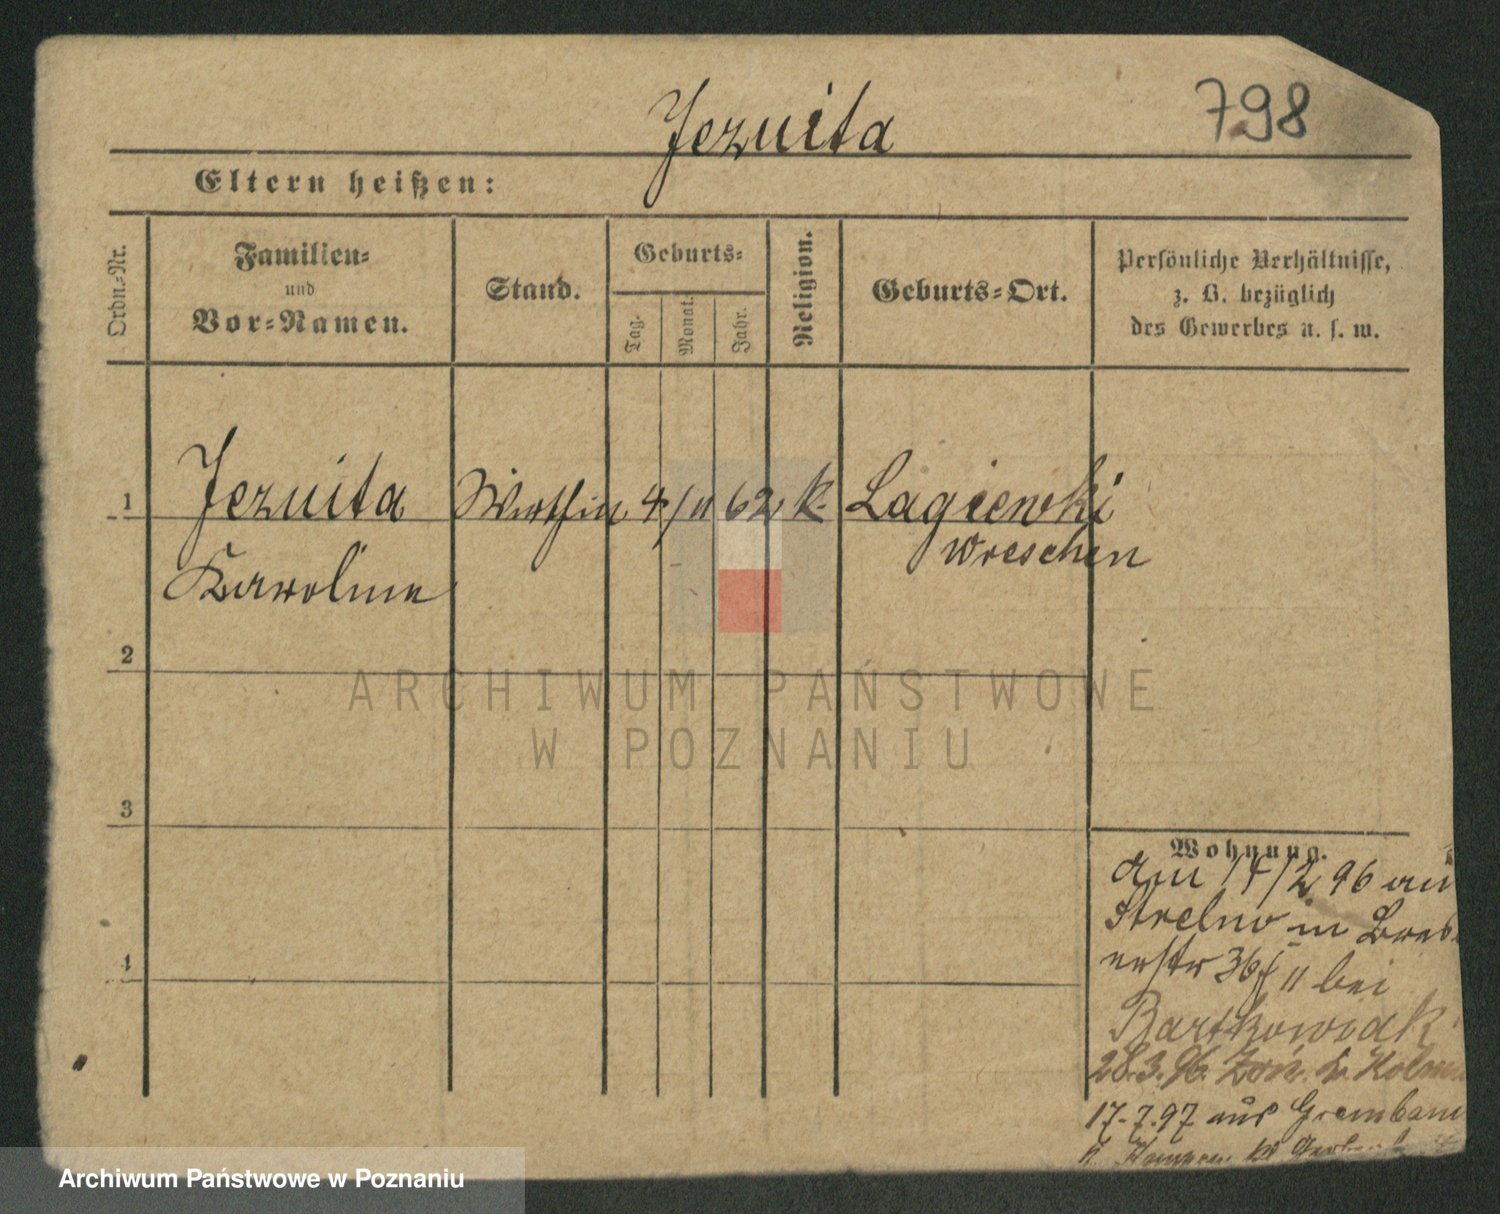 798
Jezuita
Eltern heißen:
Ordn.-Nr.
Familien-
und
Vor-Namen.
Stand.
Geburts-
Tag.
Monat.
Jahr.
Religion.
Geburts-Ort.
Persönliche Verhältnisse,
z. B. bezüglich
des Gewerbes u. s. w.
1 Jezuita Wirthin 4/11 62 k. Lagiewki
Wreschen
Karoline
2
ARCHIWUM PAŃSTWOWE
W POZNANIU
3
Wohnung.
Am 14/2 96 aus
Strelno in
36 II bei
Bartkowiak
4
28.3.96.
17.7.97 aus
Archiwum Państwowe w Poznaniu